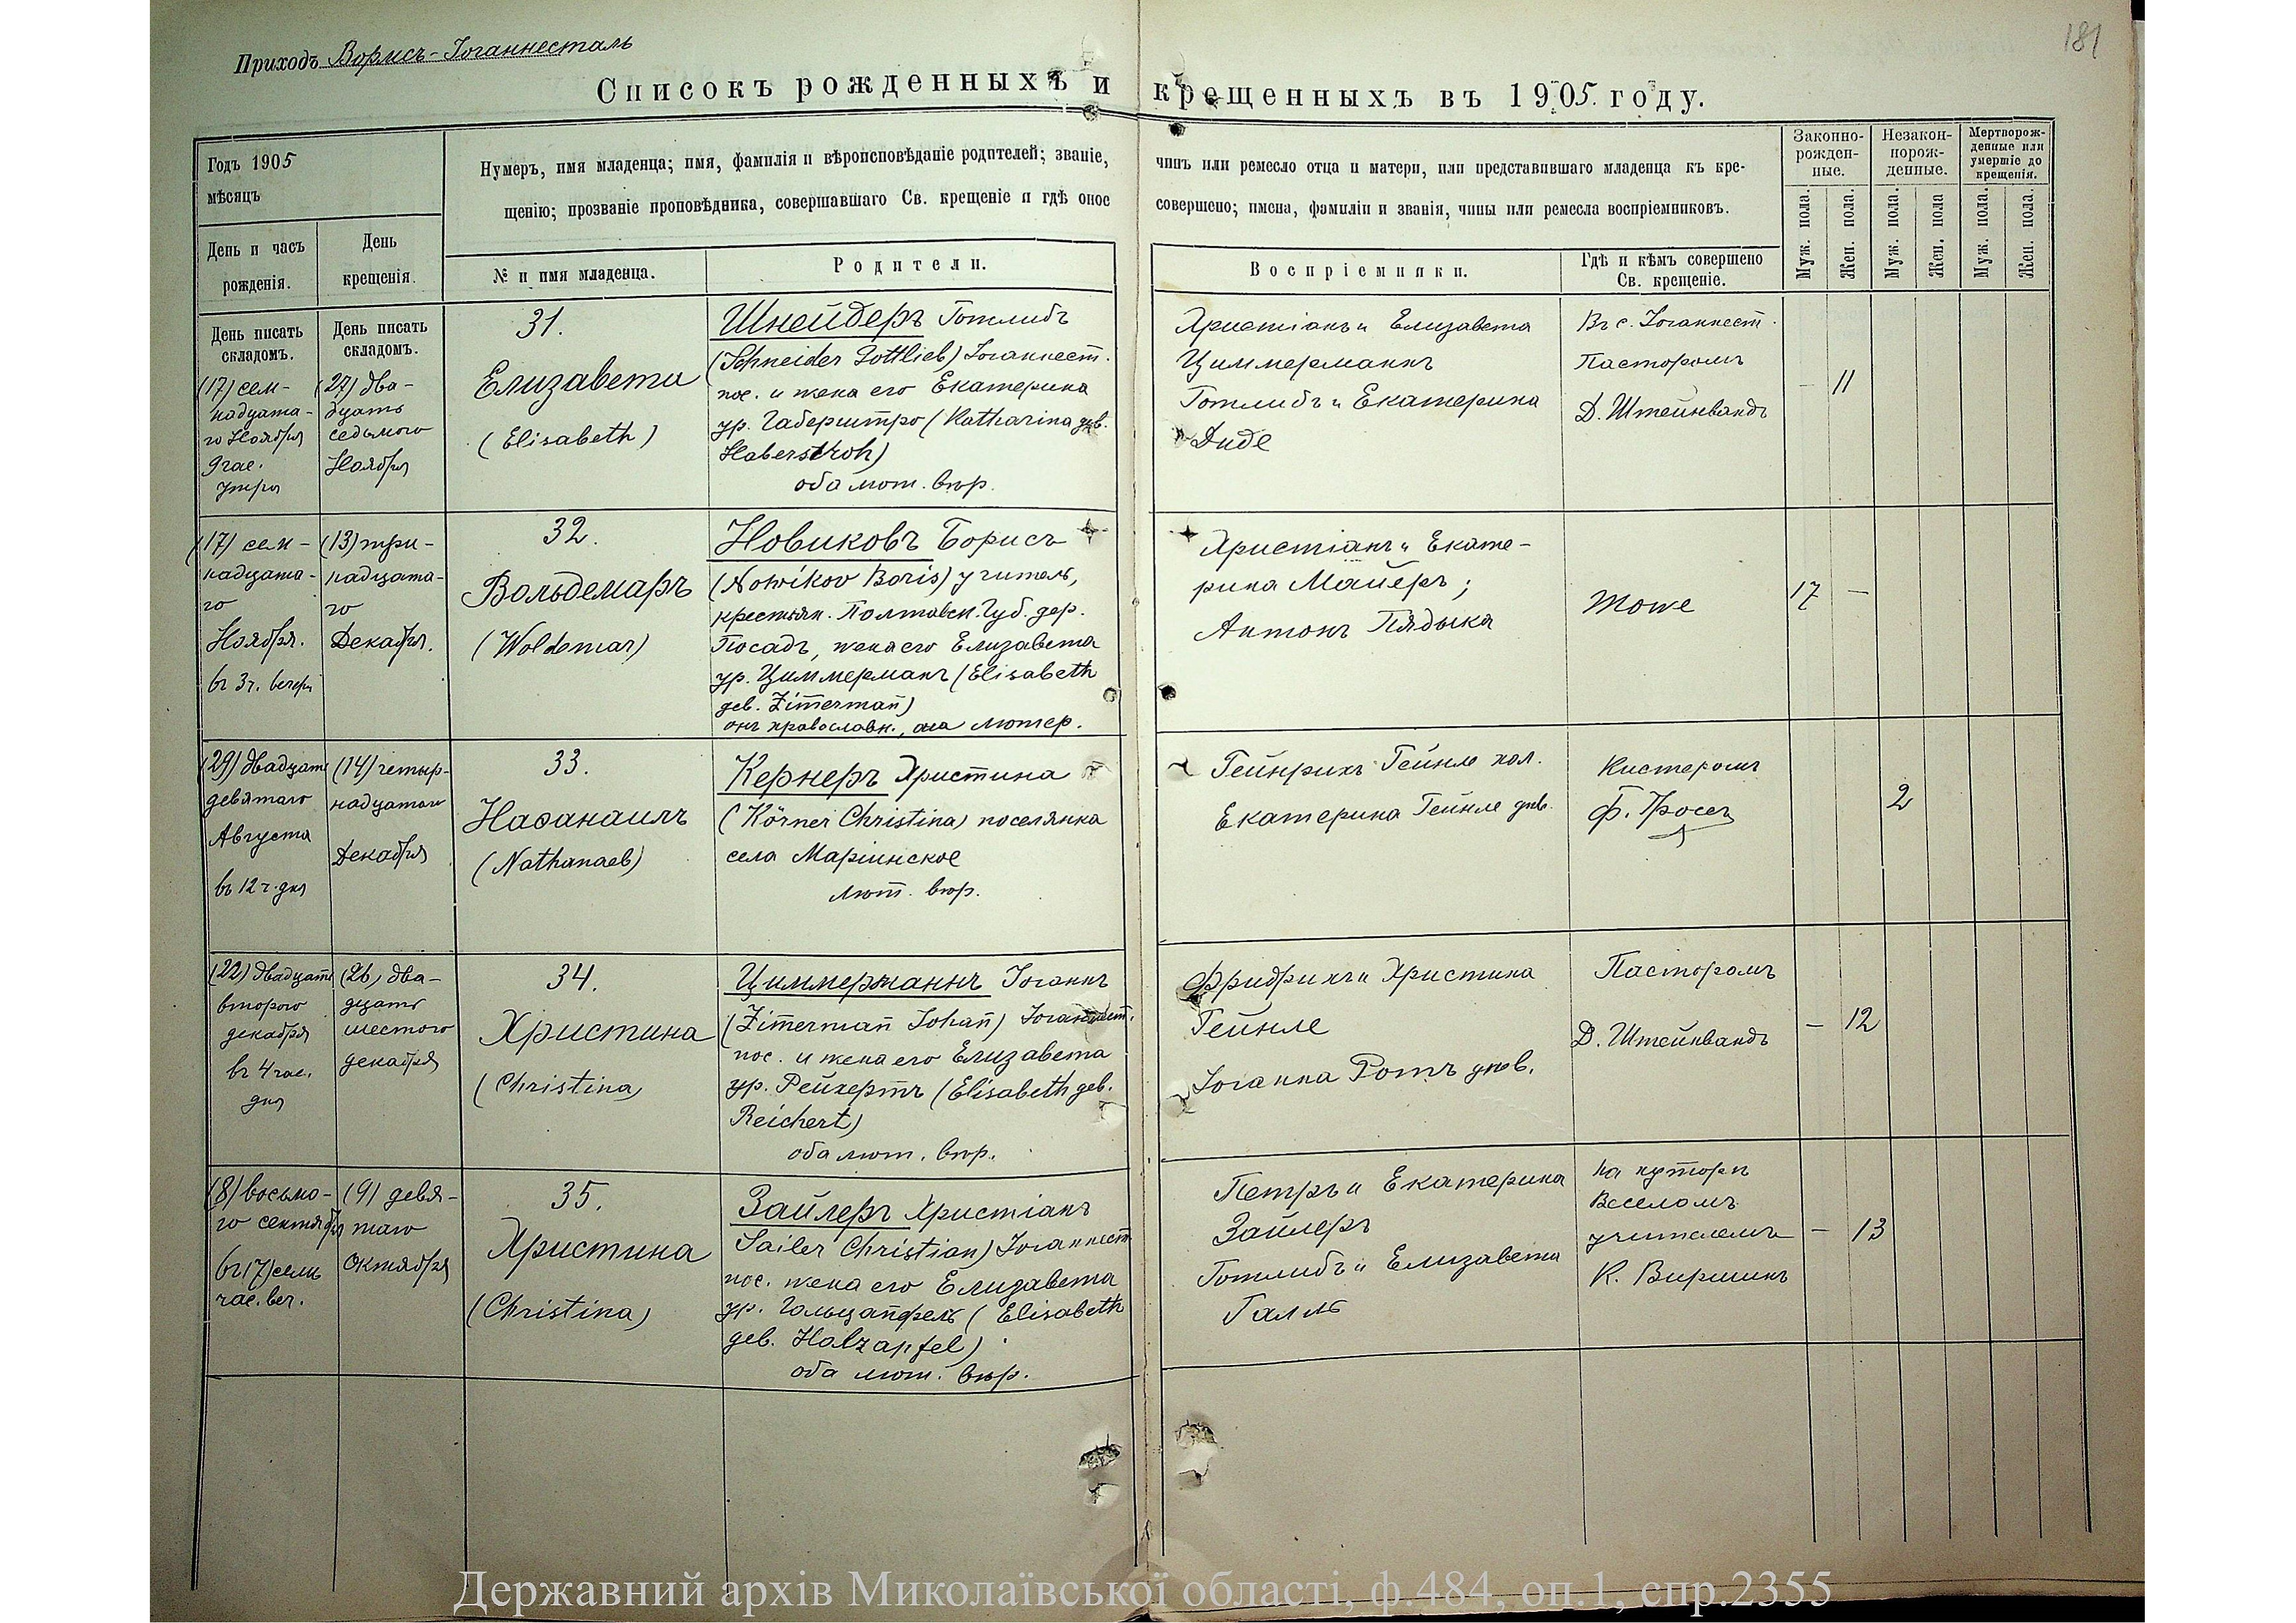 181
Приходъ Вормсъ-Іоганнесталь
Списокъ рожденныхъ и крещенныхъ въ 1905 году.
Годъ 1905
мѣсяцъ
День и часъ
рожденія.
День
крещенія.
Нумеръ, имя младенца; имя, фамилія и вѣроисповѣданіе родителей; званіе,
щенію; прозваніе проповѣдника, совершавшаго Св. крещеніе и гдѣ оное
№ и имя младенца.
Родители.
чинъ или ремесло отца и матери, или представившаго младенца къ кре-
совершено; имена, фамиліи и званія, чины или ремесла воспріемниковъ.
Воспріемники.
Гдѣ и кѣмъ совершено
Св. крещеніе.
Законно-
рожден-
ные.
Незакон-
норож-
денные.
Мертворож-
денные или
умершіе до
крещенія.
Муж. пола.
Жен. пола.
Муж. пола.
Жен. пола
Муж. пола.
Жен. пола.
День писать
складомъ.
День писать
складомъ.
(17) сем-
надцата-
го Ноября
9 час.
утра
(27) два-
дцать
седьмого
Ноября
31.
Елизавета
(Elisabeth)
Шнейдеръ Готлибъ
(Schneider Gottlieb) Іоганнест.
пос. и жена его Екатерина
ур. Габерштро (Katharina geb.
Haberstroh)
оба лют. вѣр.
Христіанъ и Елизавета
Циммерманнъ
Готлибъ и Екатерина
Диде
Въ с. Іоганнест.
Пасторомъ
Д. Штейнвандъ
– 11
(17) сем-
надцата-
го
Ноября.
въ 3 ч. вечера
(13) три-
надцата-
го
Декабря.
32.
Вольдемаръ
(Woldemar)
Новиковъ Борисъ
(Nowikov Boris) учитель,
крестьян. Полтавск. Губ. дер.
Посадъ, жена его Елизавета
ур. Циммерманъ (Elisabeth
geb. Zimerman)
онъ православн., она лютер.
Христіанъ и Екате-
рина Майеръ;
Антонъ Пядыка
тоже
17 –
(29) двадцать
девятаго
Августа
въ 12 ч. дня
(14) четыр-
надцатаго
Декабря
33.
Наѳанаилъ
(Nathanael)
Кернеръ Христина
(Körner Christina) поселянка
села Маріинское
лют. вѣр.
Гейнрихъ Гейнле хол.
Екатерина Гейнле дѣв.
Кистеромъ
2
(22) двадцать
второго
декабря
въ 4 час.
дня
(26) два-
дцать
шестого
декабря
34.
Христина
(Christina)
Циммерманнъ Іоганнъ
(Zimerman Johan) Іоганнест.
пос. и жена его Елизавета
ур. Рейхертъ (Elisabeth geb.
Reichert)
оба лют. вѣр.
Фридрихъ и Христина
Гейнле
Іоганна Ротъ дѣв.
Пасторомъ
Д. Штейнвандъ
– 12
(8) восьмо-
го сентября
въ (7) семь
час. веч.
(9) девя-
таго
Октября
35.
Христина
(Christina)
Зайлеръ Христіанъ
Sailer Christian) Іоганнест.
пос. жена его Елизавета
ур. Гольцапфель (Elisabeth
geb. Holzapfel)
оба лют. вѣр.
Петръ и Екатерина
Зайлеръ
Готлибъ и Елизавета
Галль
на хуторѣ
Веселомъ
учителемъ
– 13
Державний архів Миколаївської області, ф.484, оп.1, спр.2355